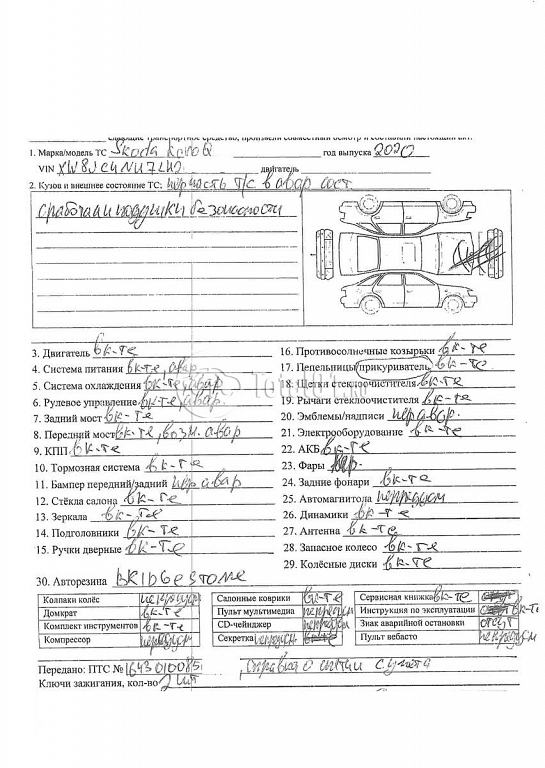 1. Марка/модель ТС Skoda KaroQ год выпуска 2020
VIN двигатель
2. Кузов и внешнее состояние ТС: в авар сост
сработали подушки безопасности
3. Двигатель вк-те
4. Система питания вк-те, авар
5. Система охлаждения вк-те, авар
6. Рулевое управление вк-те, авар
7. Задний мост вк-те
8. Передний мост вк-те, возм. авар
9. КПП вк-те
10. Тормозная система вк-те
11. Бампер передний/задний пер авар
12. Стёкла салона вк-те
13. Зеркала вк-те
14. Подголовники вк-те
15. Ручки дверные вк-те
16. Противосолнечные козырьки вк-те
17. Пепельницы/прикуриватель вк-те
18. Щетки стеклоочистителя вк-те
19. Рычаги стеклоочистителя вк-те
20. Эмблемы/надписи пер авар.
21. Электрооборудование вк-те
22. АКБ вк-те
23. Фары
24. Задние фонари вк-те
25. Автомагнитола непредусм
26. Динамики вк-те
27. Антенна вк-те
28. Запасное колесо вк-те
29. Колёсные диски вк-те
30. Авторезина BRIDGESTONE
Колпаки колёс непредусм
Домкрат вк-те
Комплект инструментов вк-те
Компрессор непредусм
Салонные коврики вк-те
Пульт мультимедиа непредусм
CD-чейнджер непредусм
Секретка непредусм
Сервисная книжка вк-те
Инструкция по эксплуатации вк-те
Знак аварийной остановки отсут
Пульт вебасто непредусм
Передано: ПТС № 16430100851, справка о снятии с учета
Ключи зажигания, кол-во 2 шт